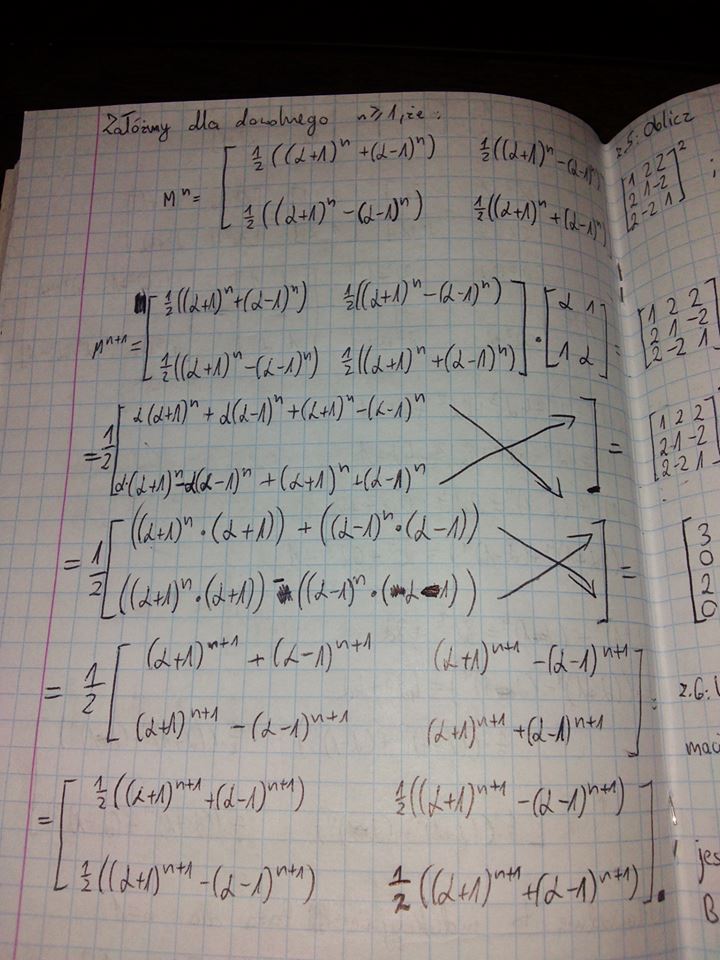 Załóżmy dla dowolnego n≥1, że:
M^n = [ 1/2((α+1)^n + (α-1)^n) 1/2((α+1)^n - (α-1)^n)
1/2((α+1)^n - (α-1)^n) 1/2((α+1)^n + (α-1)^n)
M^{n+1} = [ 1/2((α+1)^n + (α-1)^n) 1/2((α+1)^n - (α-1)^n) ] · [ α 1 ] =
1/2((α+1)^n - (α-1)^n) 1/2((α+1)^n + (α-1)^n) 1 α
= 1/2 [ α(α+1)^n + α(α-1)^n + (α+1)^n - (α-1)^n ] =
α·(α+1)^n - α(α-1)^n + (α+1)^n + (α-1)^n
= 1/2 [ ((α+1)^n · (α+1)) + ((α-1)^n · (α-1)) ] =
((α+1)^n · (α+1)) - ((α-1)^n · (α-1))
= 1/2 [ (α+1)^{n+1} + (α-1)^{n+1} (α+1)^{n+1} - (α-1)^{n+1} ] =
(α+1)^{n+1} - (α-1)^{n+1} (α+1)^{n+1} + (α-1)^{n+1}
= [ 1/2((α+1)^{n+1} + (α-1)^{n+1}) 1/2((α+1)^{n+1} - (α-1)^{n+1}) ].
1/2((α+1)^{n+1} - (α-1)^{n+1}) 1/2((α+1)^{n+1} + (α-1)^{n+1})
z.5: Oblicz
[ 1 2 2 ]^2 ;
2 1 -2
2 -2 1
[ 1 2 2
2 1 -2
2 -2 1
[ 1 2 2
2 1 -2
2 -2 1
[ 3
0
2
0
z.6:
B